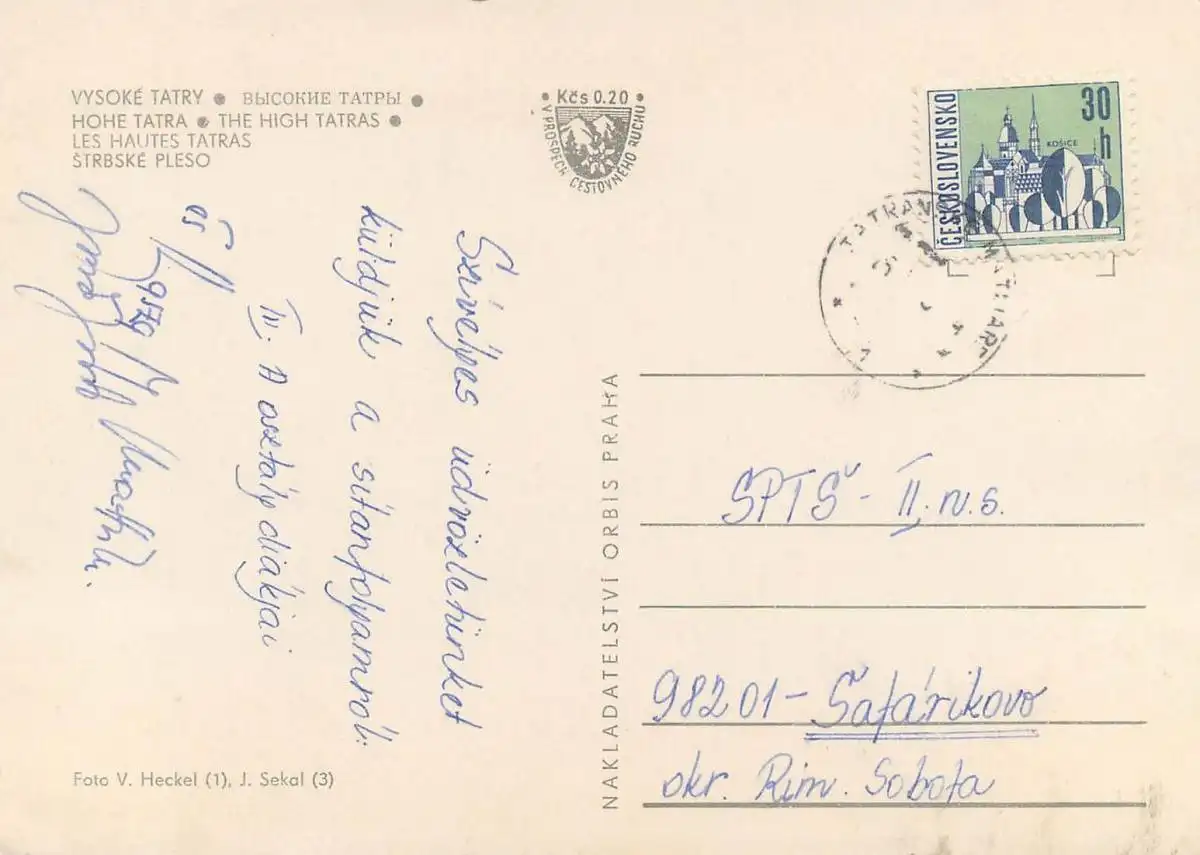 VYSOKÉ TATRY • ВЫСОКИЕ ТАТРЫ •
HOHE TATRA • THE HIGH TATRAS •
LES HAUTES TATRAS
ŠTRBSKÉ PLESO
• Kčs 0.20 •
V PROSPECH CESTOVNÉHO RUCHU
ČESKOSLOVENSKO
30 h
KOŠICE
Szívélyes üdvözletünket
küldjük a sítanfolyamról:
IV. A osztály diákjai
és
NAKLADATELSTVÍ ORBIS PRAHA
SPTŠ - II. n.s.
98201 - Šafárikovo
okr. Rim. Sobota
Foto V. Heckel (1), J. Sekal (3)